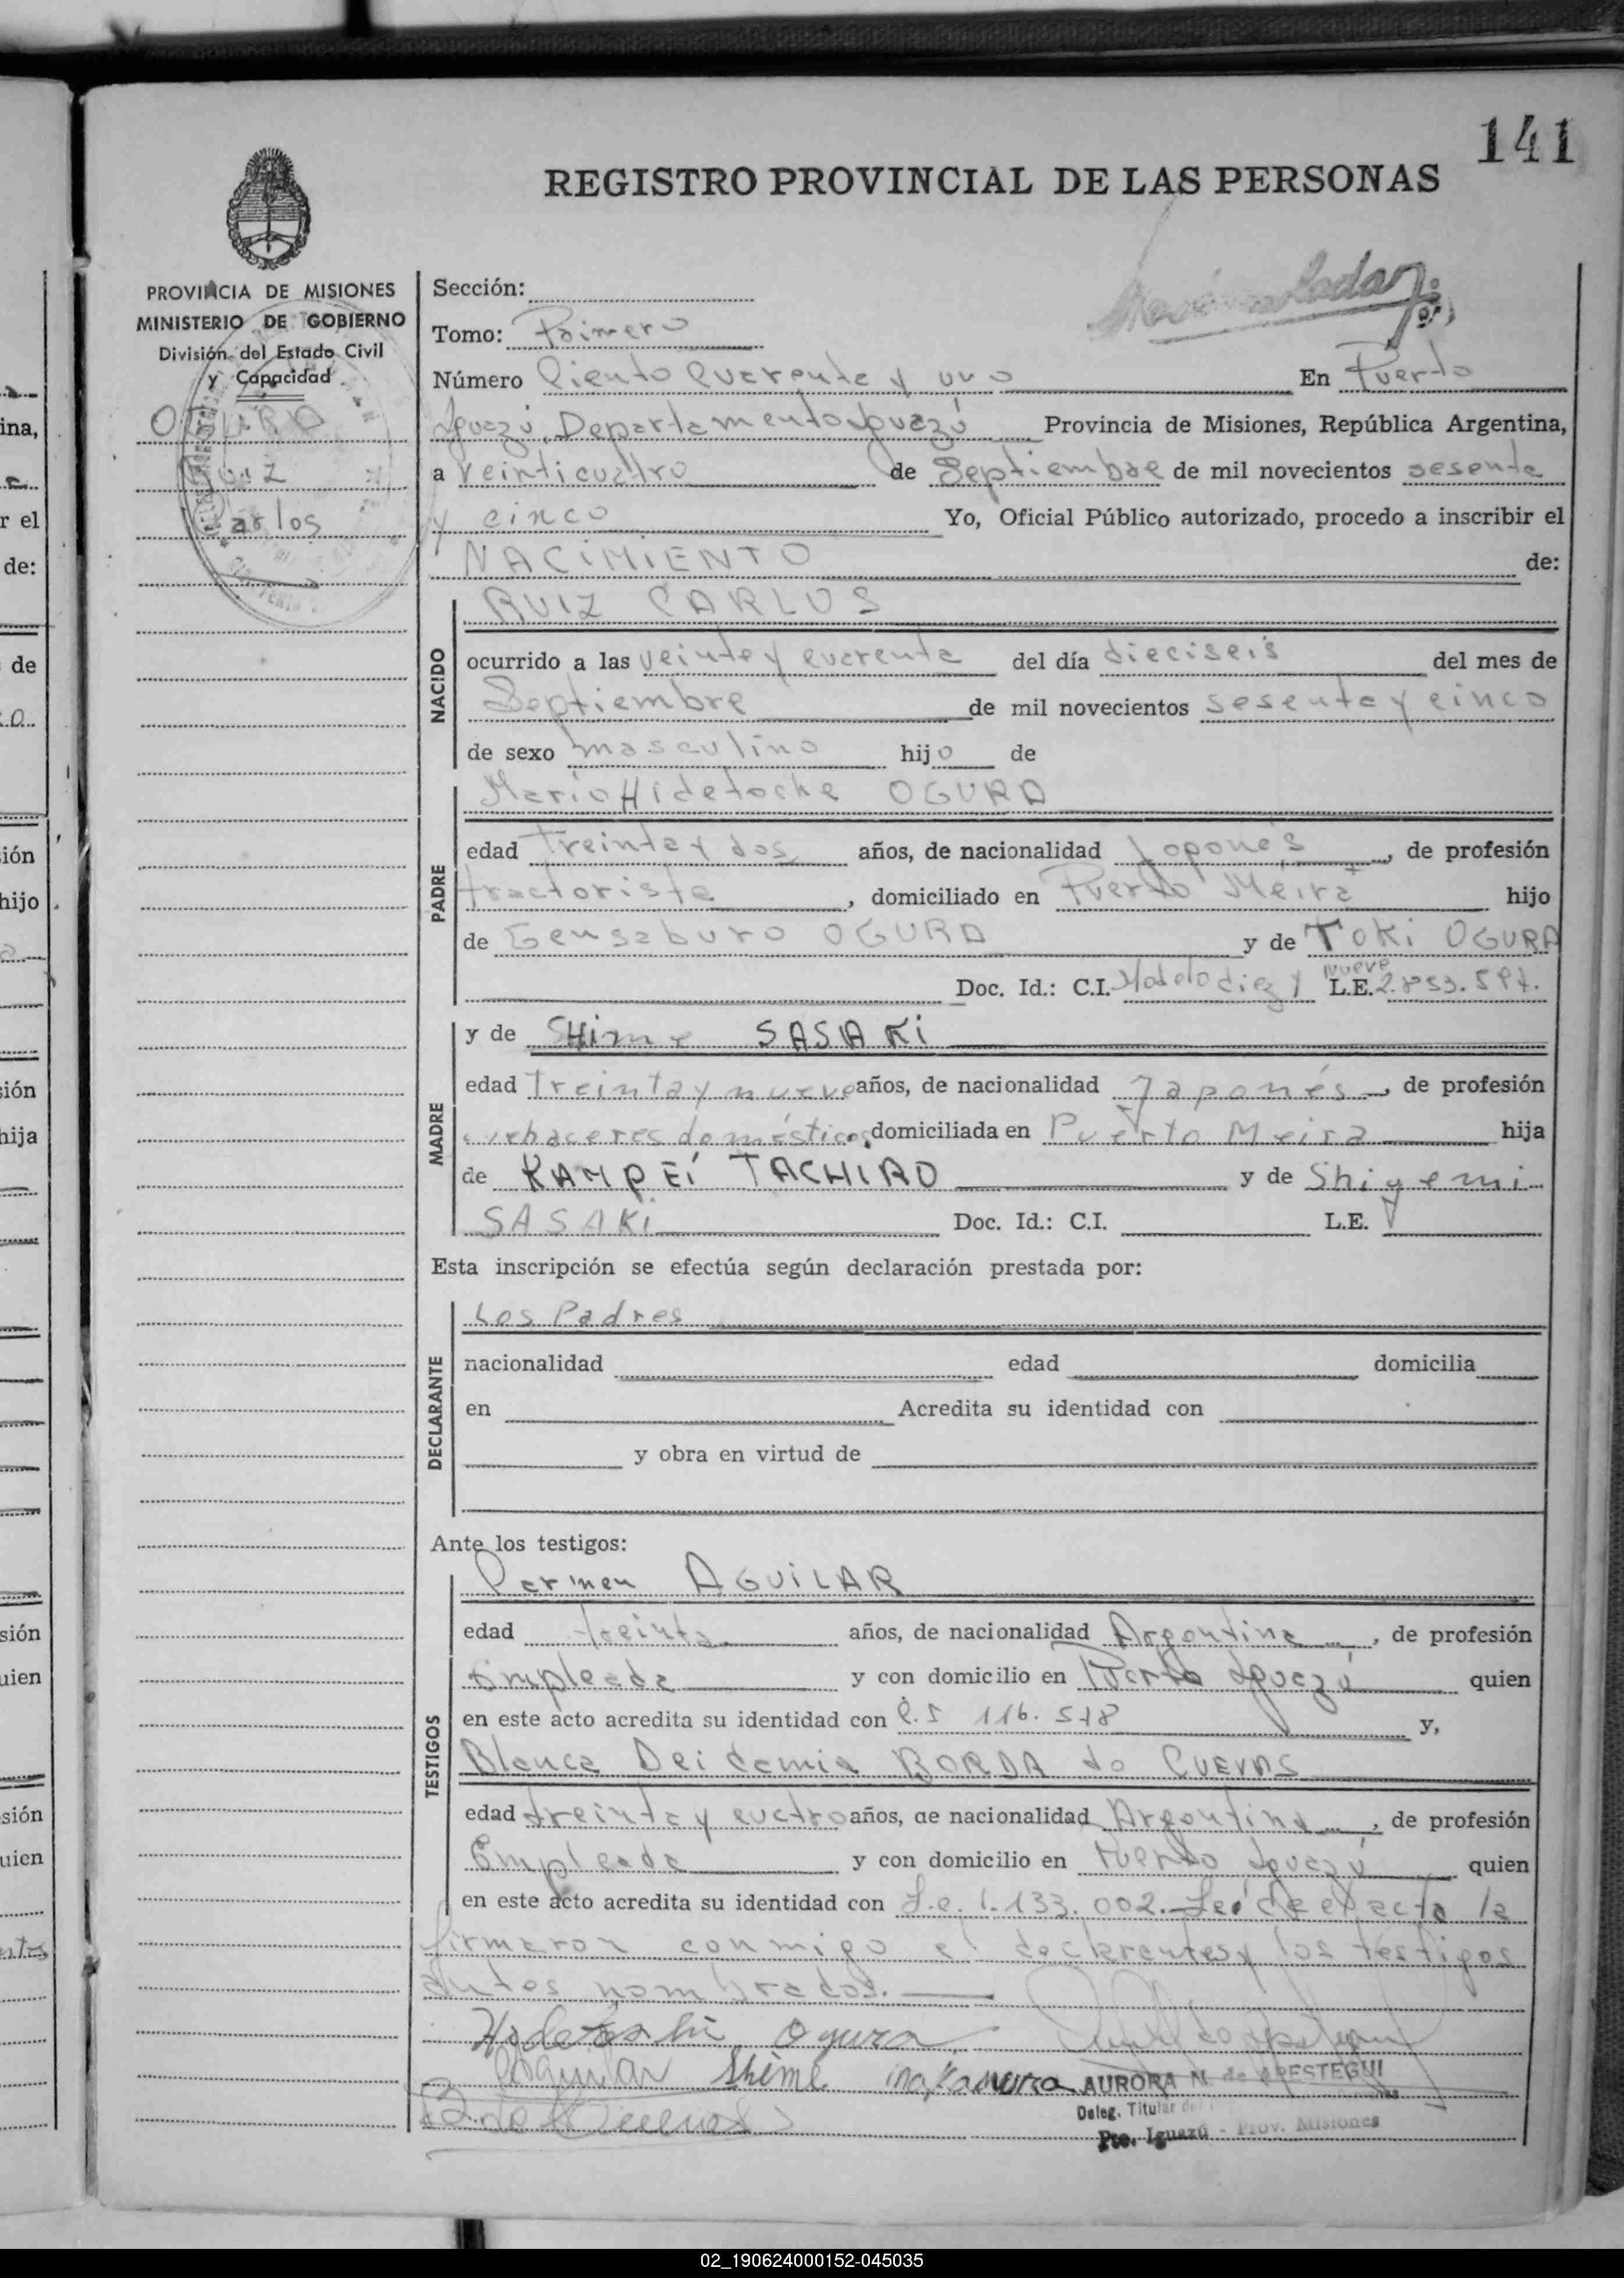 141
REGISTRO PROVINCIAL DE LAS PERSONAS
PROVINCIA DE MISIONES
MINISTERIO DE GOBIERNO
División del Estado Civil
y Capacidad
OGURA
Ruiz
Carlos
Sección:
Tomo: Primero
Número Ciento Cuarenta y uno En Puerto
Iguazú, Departamento Iguazú Provincia de Misiones, República Argentina,
a veinticuatro de Septiembre de mil novecientos sesenta
y cinco Yo, Oficial Público autorizado, procedo a inscribir el
NACIMIENTO de:
NACIDO
RUIZ CARLOS
ocurrido a las veinte y cuarenta del día dieciseis del mes de
Septiembre de mil novecientos sesenta y cinco
de sexo masculino hijo de
PADRE
Mario Hidetoche OGURA
edad treinta y dos años, de nacionalidad Japonés, de profesión
tractorista, domiciliado en Puerto Meira hijo
de Gensaburo OGURA y de TOKI OGURA
Doc. Id.: C.I. diez y nueve L.E.
MADRE
y de SHime SASAKI
edad Treinta y nueve años, de nacionalidad Japonés, de profesión
quehaceres domésticos domiciliada en Puerto Meira hija
de KAMPEI TACHIRO y de Shigemi
SASAKI Doc. Id.: C.I. L.E.
Esta inscripción se efectúa según declaración prestada por:
DECLARANTE
Los Padres
nacionalidad edad domicilia
en Acredita su identidad con
y obra en virtud de
Ante los testigos:
TESTIGOS
Carmen AGUILAR
edad treinta años, de nacionalidad Argentina, de profesión
Empleada y con domicilio en Puerto Iguazú quien
en este acto acredita su identidad con C.I 116.578 y,
Blanca Deidamia BORDA de CUEVAS
edad treinta y cuatro años, de nacionalidad Argentina, de profesión
Empleada y con domicilio en Puerto Iguazú quien
en este acto acredita su identidad con L.e. 1.133.002.- Leída el acta la
firmaron conmigo el declarantes y los testigos
antes nombrados.
Hidetoshi Ogura
Aguilar Shime inakamura AURORA N. de APESTEGUI
B de Cuevas Deleg. Titular del
Pto. Iguazú - Prov. Misiones
ina,
r el
de:
de
ión
hijo
sión
hija
sión
uien
sión
uien
02_190624000152-045035